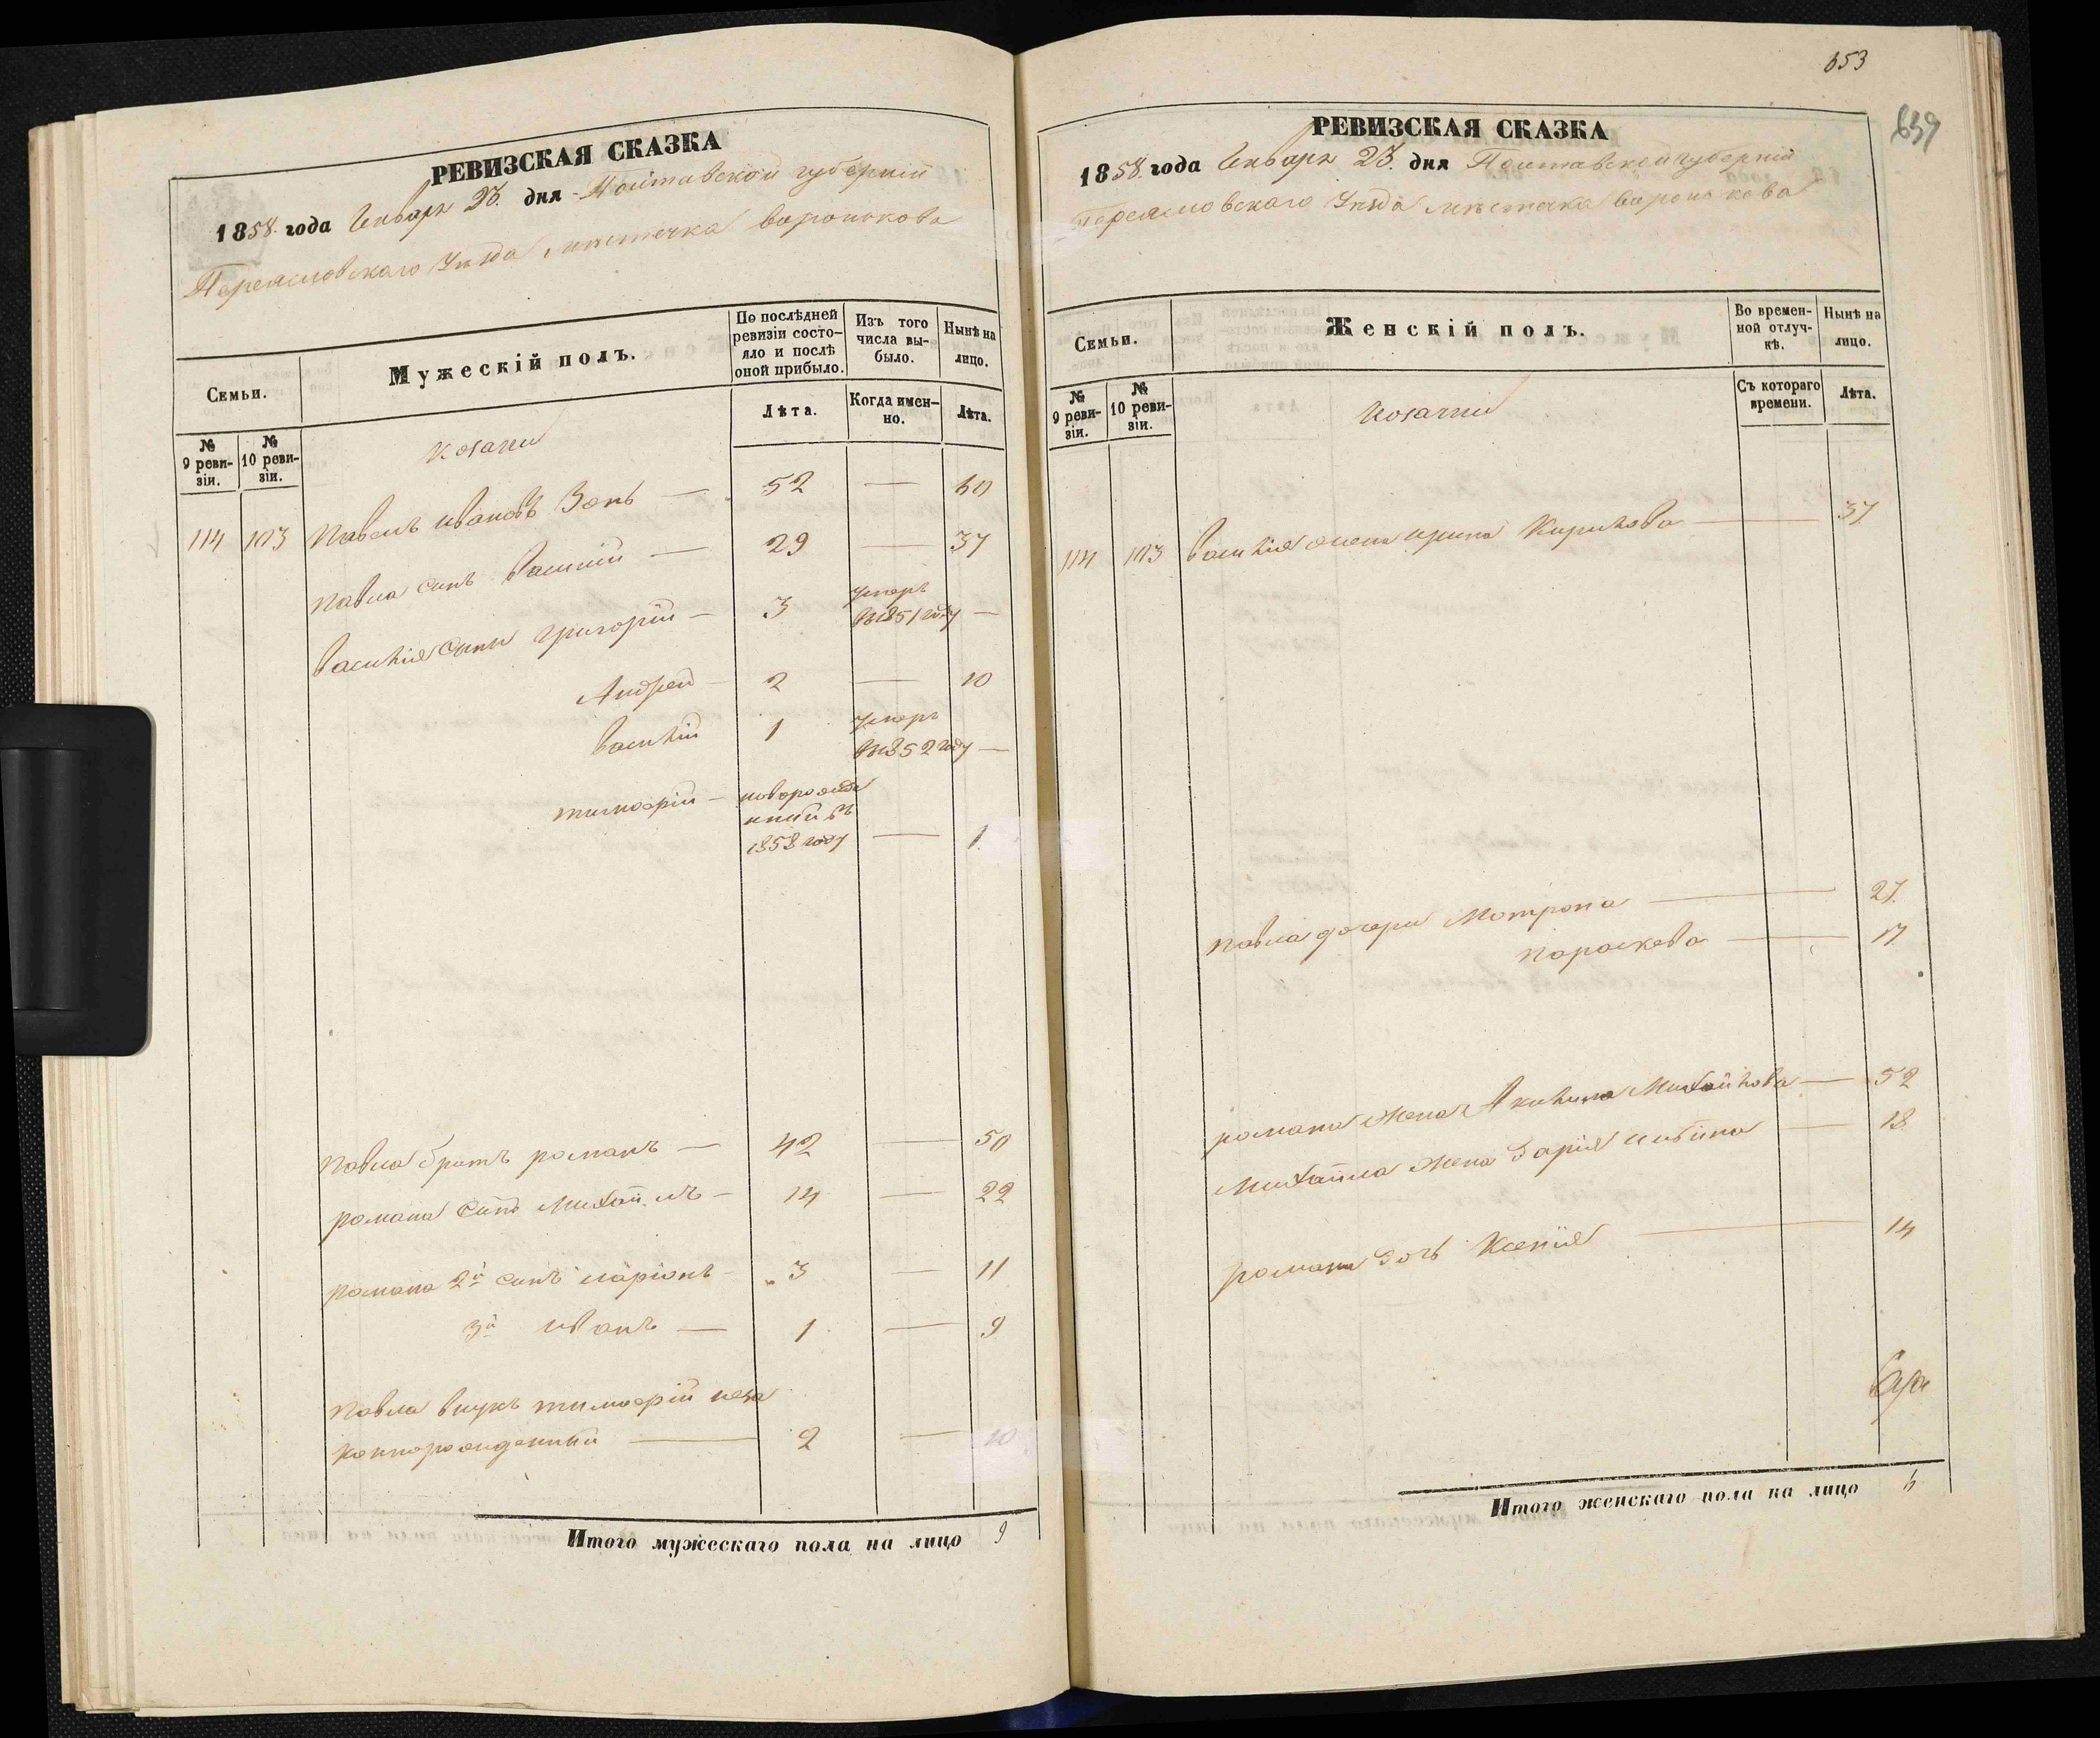 РЕВИЗСКАЯ СКАЗКА
1858 года Генваря 23 дня Полтавской губерніи
Переяславскаго Уѣзда мѣстечка Воронькова
Семьи.
Мужескій полъ.
По послѣдней ревизіи состояло и послѣ оной прибыло.
Изъ того числа выбыло.
Нынѣ на лицо.
№ 9 ревизіи.
№ 10 ревизіи.
Лѣта.
Когда именно.
Лѣта.
Козаки
114 103 Павелъ Ивановъ Зонь — 52 — 60
Павла сынъ Василій — 29 — 37
Василія сыны Григорій — 3 умеръ въ 1851 году —
Андрей — 2 — 10
Василій 1 умеръ въ 1852 году —
Тимофій — новорожденный въ 1858 году — 1
Павла братъ Романъ — 42 — 50
Романа сынъ Михайлъ — 14 — 22
Романа 2й сынъ Ларіонъ — 3 — 11
3й Иванъ — 1 — 9
Павла внукъ Тимофій неза
коннорожденный — 2 — 10
Итого мужескаго пола на лицо 9
653
659
РЕВИЗСКАЯ СКАЗКА
1858 года Генваря 23 дня Полтавской губерніи
Переяславскаго Уѣзда мѣстечка Воронькова
Семьи.
Женскій полъ.
Во временной отлучкѣ.
Нынѣ на лицо.
№ 9 ревизіи.
№ 10 ревизіи.
Съ котораго времени.
Лѣта.
Козачки
114 103 Василія жена Ирина Кирилова — 37
Павла дочери Мотрона — 27
Параскева — 17
Романа жена Акилина Михайлова — 52
Михайла жена Дарія — 18
Романа дочь Ксенія — 14
Итого женскаго пола на лицо 6